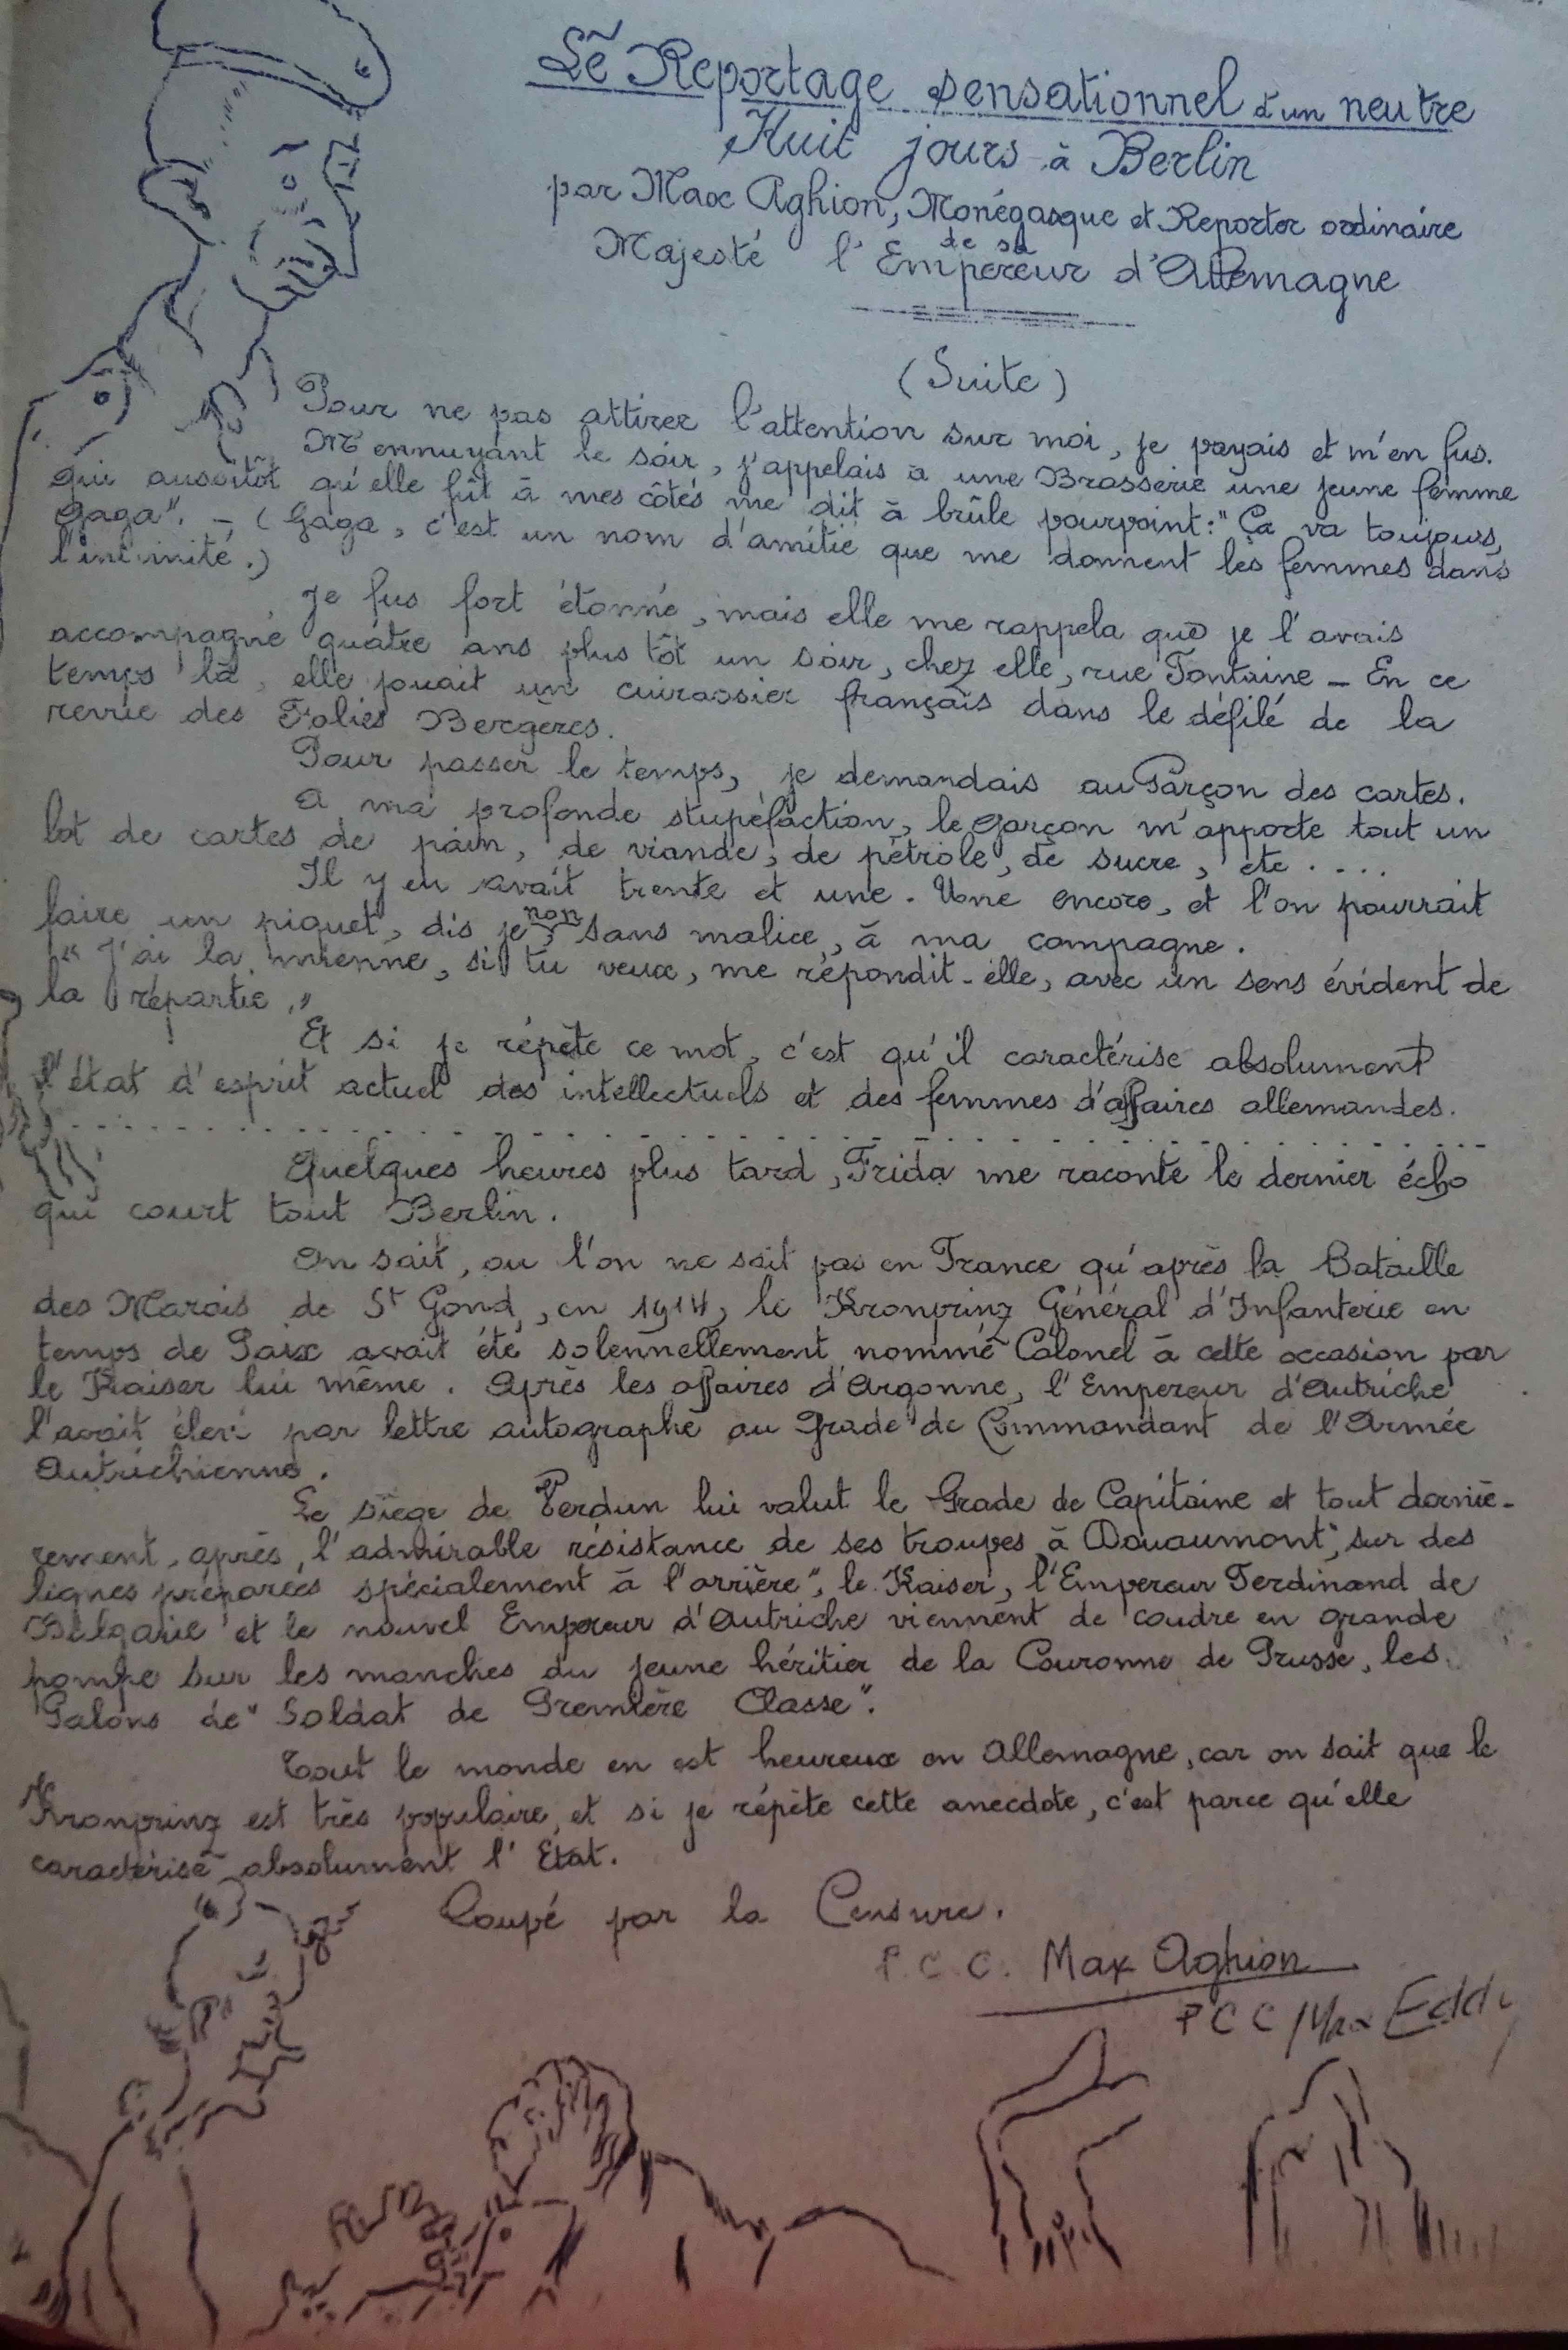 Le Reportage sensationnel d'un neutre
Huit jours à Berlin
par Max Aghion, Monégasque et Reporter ordinaire
de sa
Majesté l'Empereur d'Allemagne
(Suite)
Pour ne pas attirer l'attention sur moi, je payais et m'en fus.
M'ennuyant le soir, j'appelais à une Brasserie une jeune femme
qui aussitôt qu'elle fût à mes côtés me dit à brûle pourpoint: "Ça va toujours,
Gaga". - (Gaga, c'est un nom d'amitié que me donnent les femmes dans
l'intimité.)
Je fus fort étonné, mais elle me rappela que je l'avais
accompagné quatre ans plus tôt un soir, chez elle, rue Fontaine - En ce
temps là, elle jouait un cuirassier français dans le défilé de la
revue des Folies Bergères.
Pour passer le temps, je demandais au Garçon des cartes.
A ma profonde stupéfaction, le garçon m'apporte tout un
lot de cartes de pain, de viande, de pétrole, de sucre, etc ....
Il y en avait trente et une. Une encore, et l'on pourrait
faire un piquet, dis je, non sans malice, à ma compagne.
"J'ai la mienne, si tu veux, me répondit-elle, avec un sens évident de
la répartie."
Et si je répète ce mot, c'est qu'il caractérise absolument
l'état d'esprit actuel des intellectuels et des femmes d'affaires allemandes.
Quelques heures plus tard, Frida me raconte le dernier écho
qui court tout Berlin.
On sait, ou l'on ne sait pas en France qu'après la Bataille
des Marais de St Gond, en 1914, le Kronprinz Général d'Infanterie en
temps de Paix avait été solennellement nommé Colonel à cette occasion par
le Kaiser lui même. Après les affaires d'Argonne, l'Empereur d'Autriche
l'avait élevé par lettre autographe au Grade de Commandant de l'Armée
Autrichienne.
Le siège de Verdun lui valut le Grade de Capitaine et tout derniè-
rement, après, l'admirable résistance de ses troupes à Douaumont "sur des
lignes préparées spécialement à l'arrière", le Kaiser, l'Empereur Ferdinand de
Bulgarie et le nouvel Empereur d'Autriche viennent de coudre en grande
pompe sur les manches du jeune héritier de la Couronne de Prusse, les
Galons de "Soldat de Première Classe".
Tout le monde en est heureux en Allemagne, car on sait que le
Kronprinz est très populaire, et si je répète cette anecdote, c'est parce qu'elle
caractérise absolument l'Etat.
Coupé par la Censure.
P.C.C. Max Aghion
PCC Max Eddy